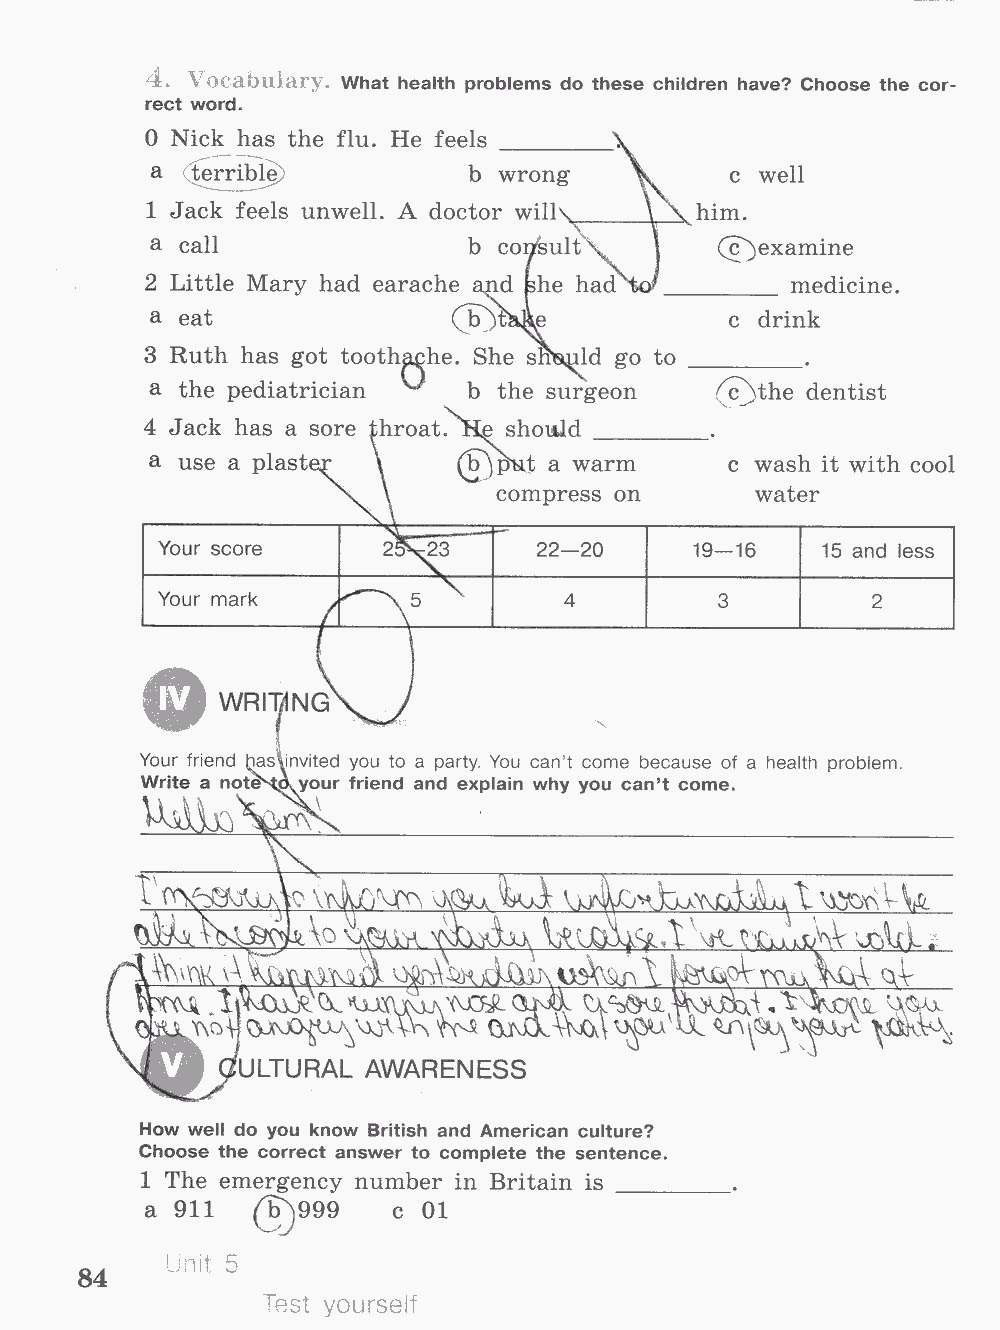 4. Vocabulary. What health problems do these children have? Choose the cor-
rect word.
0 Nick has the flu. He feels ________.
a terrible b wrong c well
1 Jack feels unwell. A doctor will ________ him.
a call b consult c examine
2 Little Mary had earache and she had to ________ medicine.
a eat b take c drink
3 Ruth has got toothache. She should go to ________.
a the pediatrician b the surgeon c the dentist
4 Jack has a sore throat. He should ________.
a use a plaster b put a warm c wash it with cool
compress on water
Your score 25—23 22—20 19—16 15 and less
Your mark 5 4 3 2
IV WRITING
Your friend has invited you to a party. You can't come because of a health problem.
Write a note to your friend and explain why you can't come.
Hello Sam!
I'm sorry to inform you but unfortunately I won't be
able to come to your party because I've caught cold.
I think it happened yesterday when I forgot my hat at
home. I have a runny nose and a sore throat. I hope you
are not angry with me and that you'll enjoy your party.
V CULTURAL AWARENESS
How well do you know British and American culture?
Choose the correct answer to complete the sentence.
1 The emergency number in Britain is ________.
a 911 b 999 c 01
84 Unit 5
Test yourself